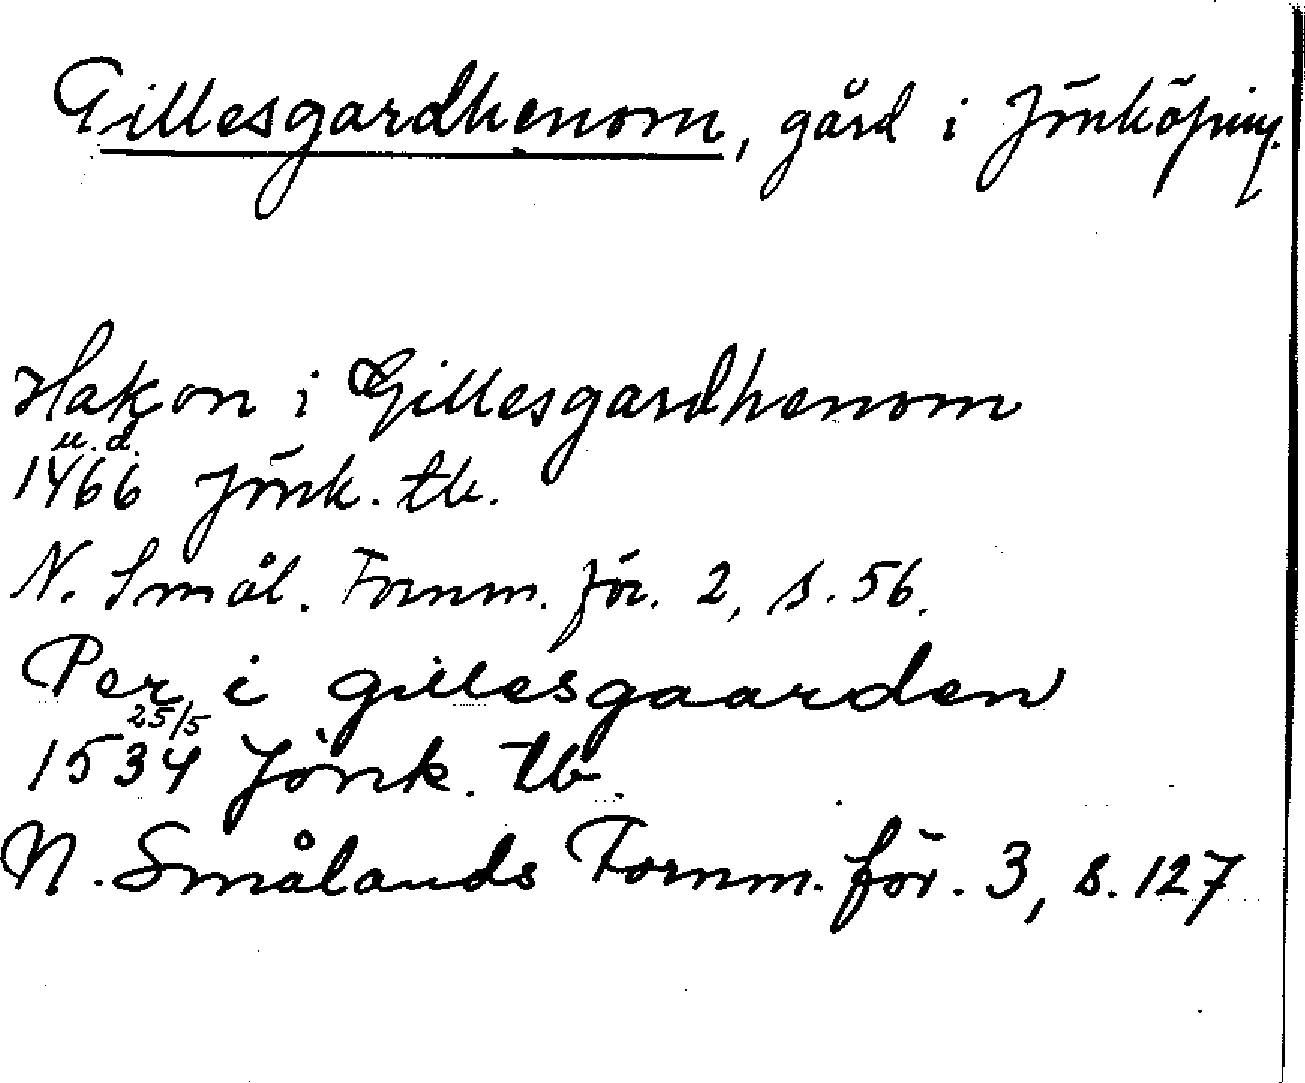 Gillesgardhenom, gård i Jönköping.
Hakon i Gillesgardhenom
u.d.
1466 Jönk. tb.
N. Smål. Fornm. för. 2, s. 56.
Per i gillesgaarden
25/5
1534 Jönk. tb.
N. Smålands Fornm. för. 3, s. 127